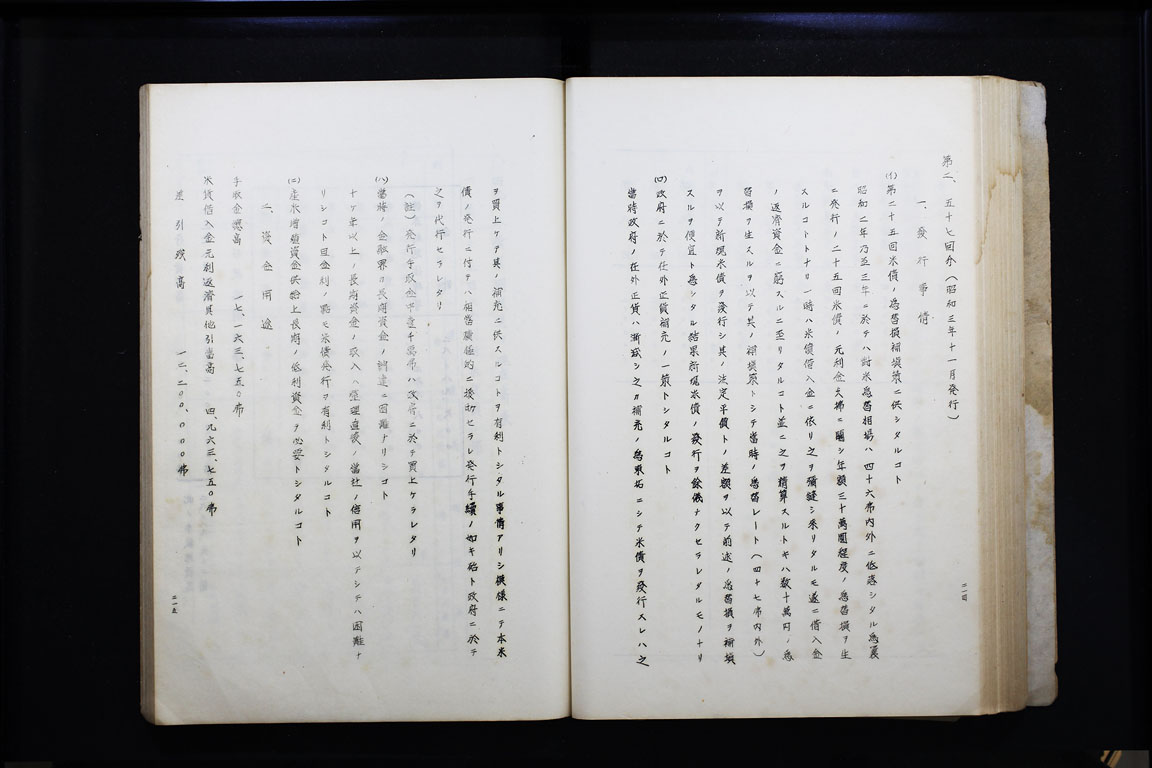 第二、五十七回分(昭和三年十一月発行)
一、發行事情
(イ)第二十五回米債ノ爲替損補塡策ニ供シタルコト
昭和二年乃至三年ニ於テハ対米爲替相場ハ四十六弗内外ニ低落シタル爲翼
ニ発行ノ二十五回米債ノ元利金支拂ニ關シ年額三十萬圓程度ノ爲替損ヲ生
スルコトトナリ一時ハ米債借入金ニ依リ之ヲ彌縫シ来リタルモ遂ニ借入金
ノ返濟資金ニ窮スルニ至リタルコト並ニ之ヲ精算スルトキハ数十萬円ノ爲
替損ヲ生スルヲ以テ其ノ補塡策トシテ當時ノ爲替レート(四十七弗内外)
ヲ以テ新規米債ヲ發行シ其ノ法定平價トノ差額ヲ以テ前述ノ爲替損ヲ補塡
スルヲ便宜ト爲シタル結果新規米債ノ發行ヲ餘儀ナクセラレタルモノナリ
(ロ)政府ニ於テ在外正貨補充ノ一策トシタルコト
當時政府ノ在外正貨ハ漸減シ之カ補充ノ爲東拓ニシテ米債ヲ發行スレハ之
ヲ買上ケテ其ノ補充ニ供スルコトヲ有利トシタル事情アリシ模様ニテ本米
債ノ発行ニ付テハ相當積極的ニ援助セラレ発行手續ノ如キ殆ト政府ニ於テ
之ヲ代行セラレタリ
(註)発行手取金千壹千萬弗ハ政府ニ於テ買上ケラレタリ
(ハ)當時ノ金融界ハ長期資金ノ調達ニ困難ナリシコト
十ケ年以上ノ長期資金ノ取入ハ整理直後ノ當社ノ信用ヲ以テシテハ困難ナ
リシコト且金利ノ點モ米債発行ヲ有利トシタルコト
(ニ)産米增殖資金供給上長期ノ低利資金ヲ必要トシタルコト
二、資金用途
手取金總高 一七、一六三、七五〇弗
米貨借入金元利返濟其他引當高 四、九六三、七五〇弗
差引残高 一二、二〇〇、〇〇〇弗
二一四
二一五